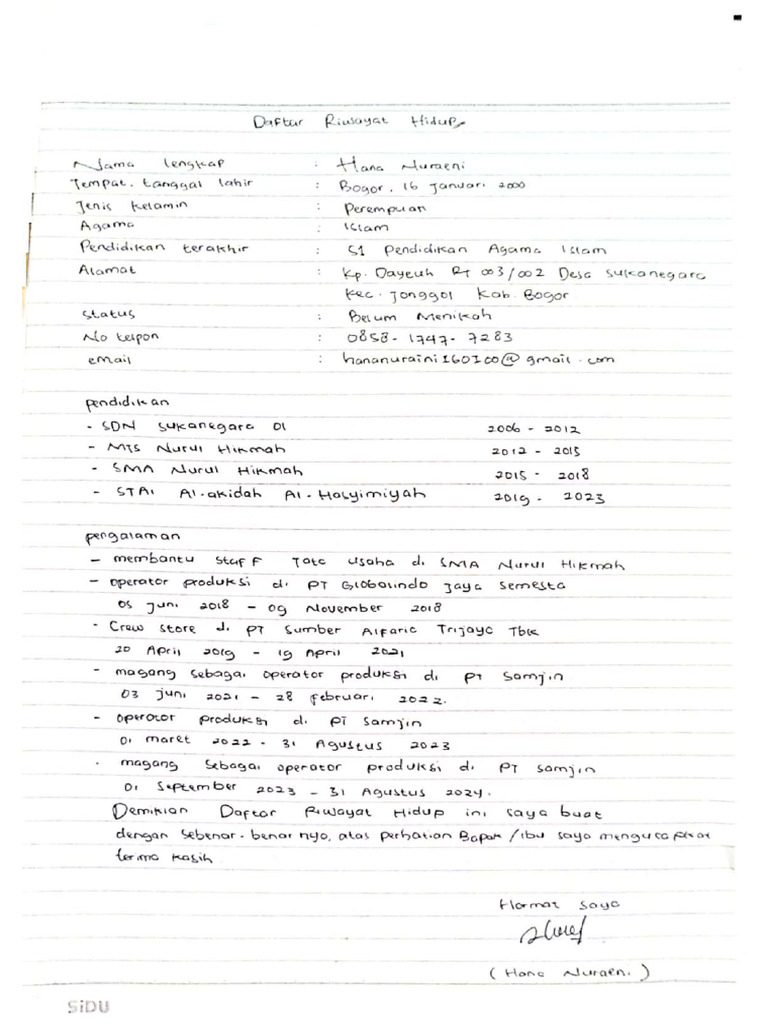 Daftar Riwayat Hidup
Nama lengkap : Hana Nuraeni
Tempat, tanggal lahir : Bogor, 16 Januari 2000
Jenis kelamin : Perempuan
Agama : Islam
Pendidikan terakhir : S1 Pendidikan Agama Islam
Alamat : Kp. Dayeuh RT 003/002 Desa Sukanegara
Kec. Jonggol Kab. Bogor
Status : Belum Menikah
No telpon : 0858-1747-7283
email : hananuraini160100@gmail.com
pendidikan
- SDN Sukanegara 01 2006 - 2012
- MTS Nurul Hikmah 2012 - 2015
- SMA Nurul Hikmah 2015 - 2018
- STAI Al-akidah Al-Hasyimiyah 2019 - 2023
pengalaman
- membantu staff Tata Usaha di SMA Nurul Hikmah
- operator produksi di PT Globalindo Jaya Semesta
05 Juni 2018 - 09 November 2018
- Crew store di PT Sumber Alfaria Trijaya Tbk
20 April 2019 - 19 April 2021
- magang sebagai operator produksi di PT Samjin
03 Juni 2021 - 28 februari 2022.
- operator produksi di PT Samjin
01 maret 2022 - 31 Agustus 2023
- magang sebagai operator produksi di PT Samjin
01 September 2023 - 31 Agustus 2024.
Demikian Daftar Riwayat Hidup ini saya buat
dengan sebenar-benarnya, atas perhatian Bapak/ibu saya mengucapkan
terima kasih
Hormat saya
(Hana Nuraeni)
SiDU